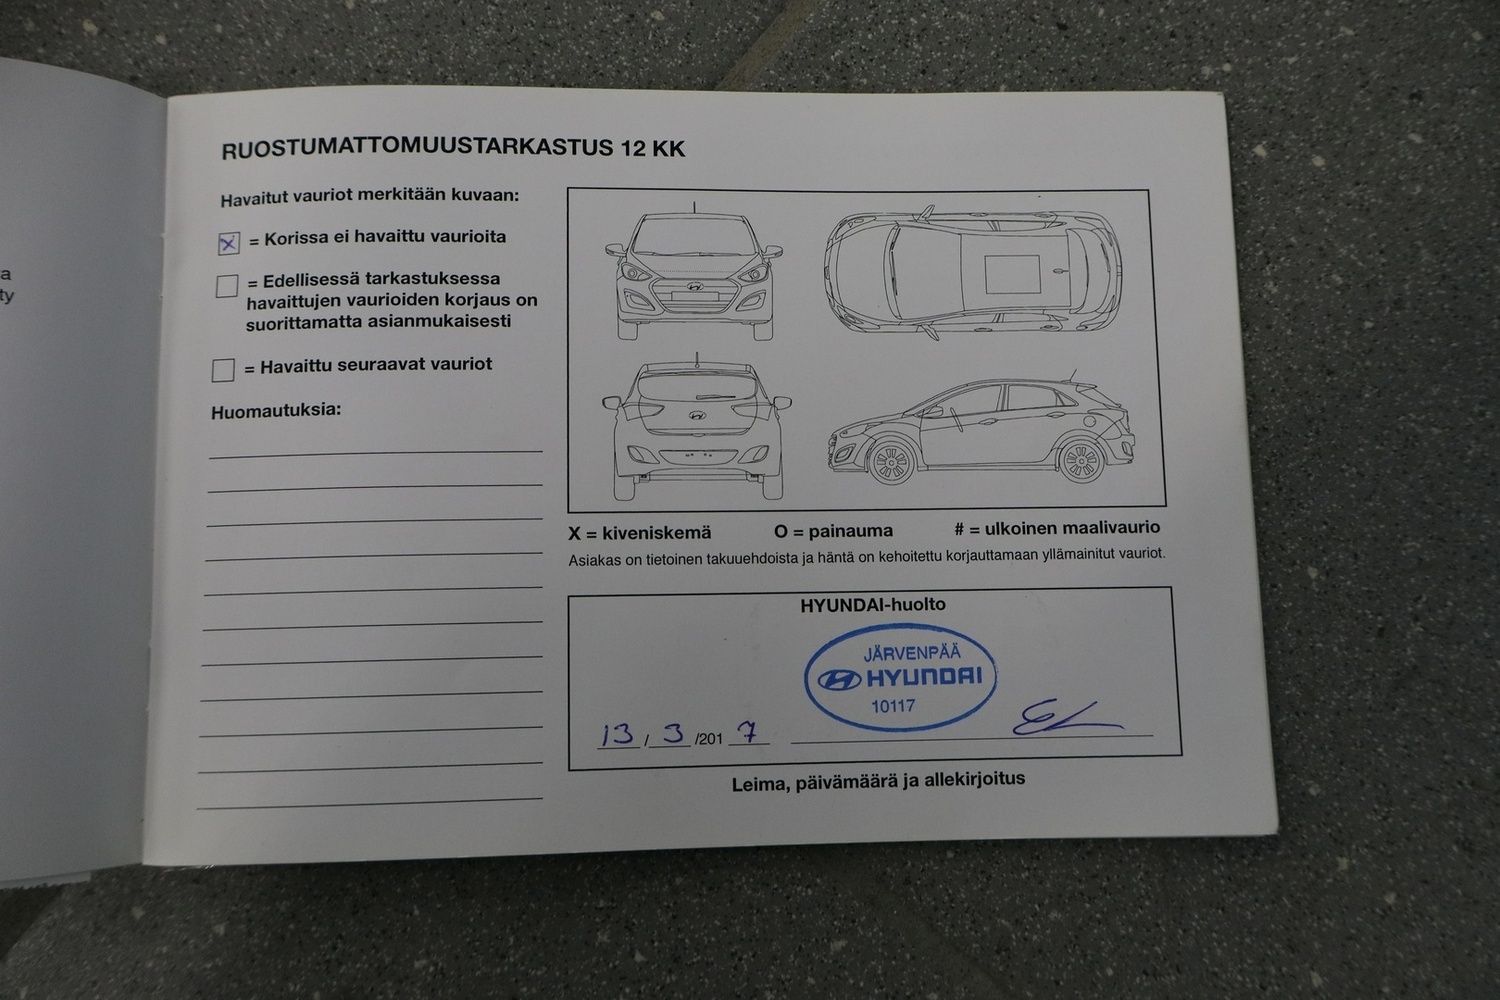 a
ty
RUOSTUMATTOMUUSTARKASTUS 12 KK
Havaitut vauriot merkitään kuvaan:
X = Korissa ei havaittu vaurioita
= Edellisessä tarkastuksessa
havaittujen vaurioiden korjaus on
suorittamatta asianmukaisesti
= Havaittu seuraavat vauriot
Huomautuksia:
X = kiveniskemä O = painauma # = ulkoinen maalivaurio
Asiakas on tietoinen takuuehdoista ja häntä on kehoitettu korjauttamaan yllämainitut vauriot.
HYUNDAI-huolto
JÄRVENPÄÄ
HYUNDAI
10117
13 / 3 /201 7
Leima, päivämäärä ja allekirjoitus